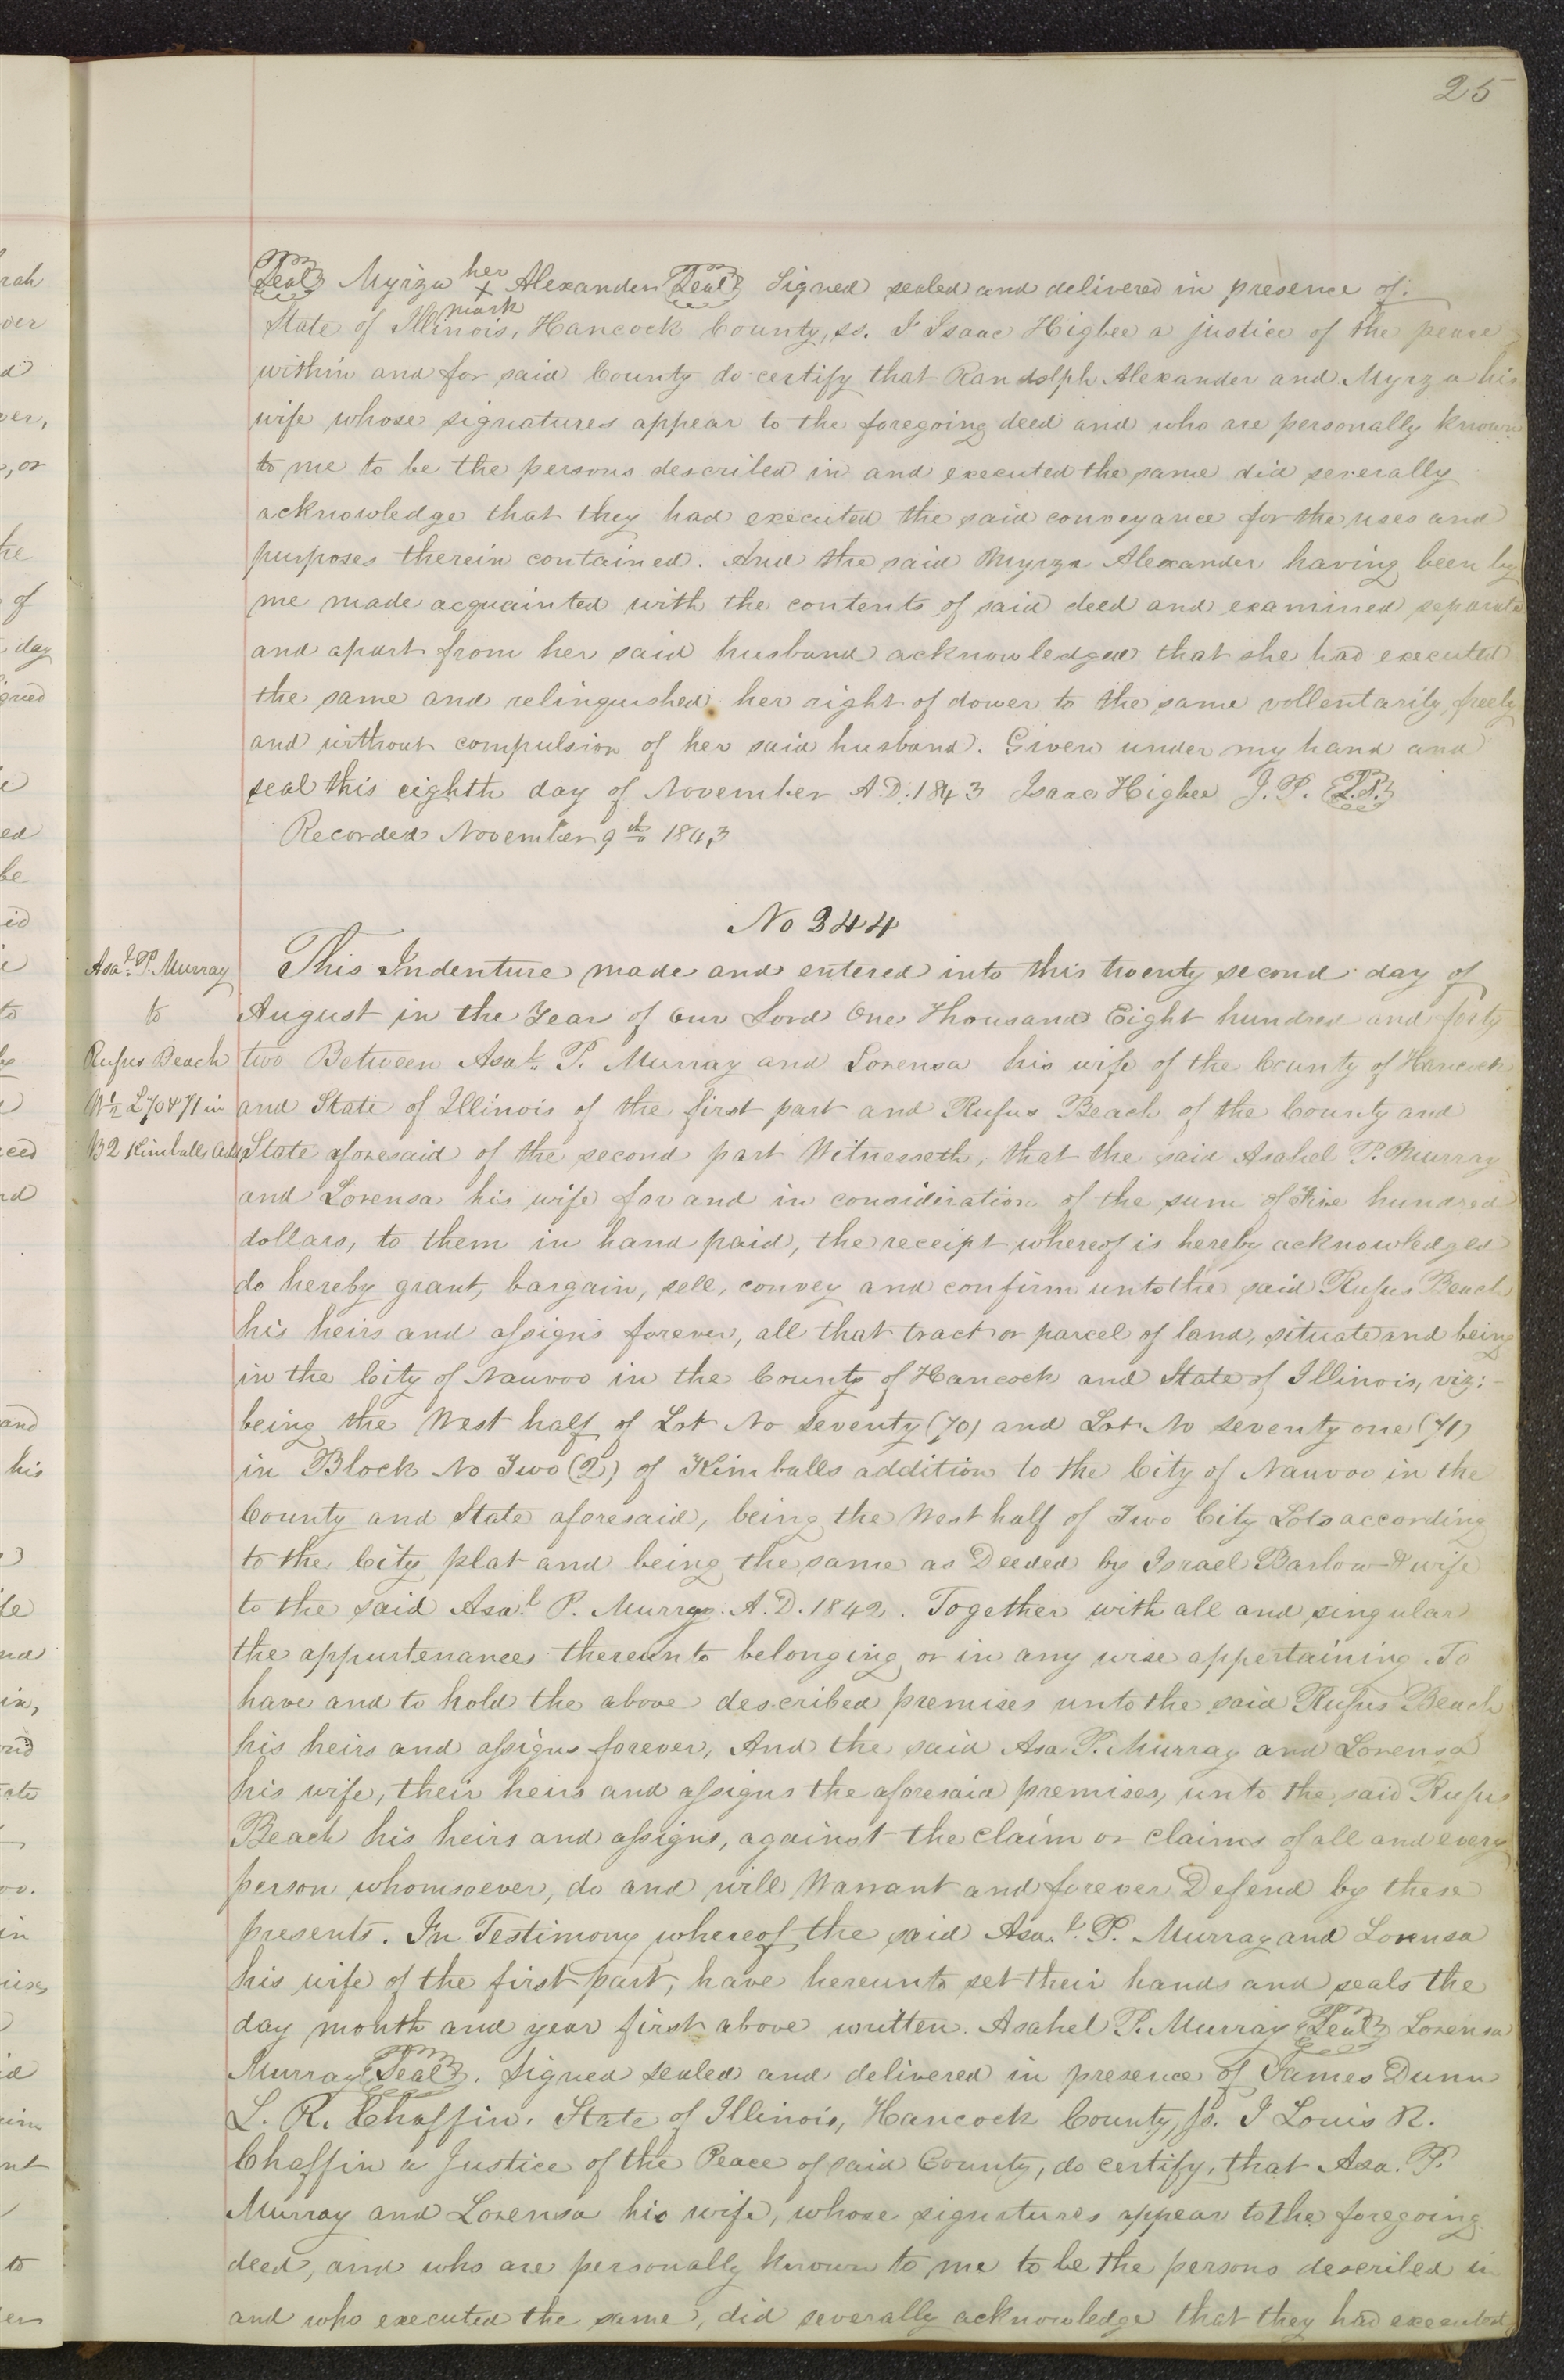 25
Seal Myrza her x mark Alexander Seal Signed sealed and delivered in presence of.
State of Illinois, Hancock County, ss. I Isaac Higbee a justice of the peace
within and for said County do certify that Randolph Alexander and Myrza his
wife whose signatures appear to the foregoing deed and who are personally known
to me to be the persons described in and executed the same did severally
acknowledge that they had executed the said conveyance for the uses and
purposes therein contained. And the said Myrza Alexander having been by
me made acquainted with the contents of said deed and examined separate
and apart from her said husband acknowledged that she had executed
the same and relinquished her right of dower to the same vollentarily, freely
and without compulsion of her said husband. Given under my hand and
seal this eighth day of November A.D. 1843 Isaac Higbee J. P. L.S.
Recorded November 9th 1843
No 344
Asal. P. Murray
to
Rufus Beach
W 1/2 L 70 & 71 in
B 2 Kimballs Add
This Indenture made and entered into this twenty second day of
August in the Year of Our Lord One Thousand Eight hundred and forty
two Between Asal. P. Murray and Lorensa his wife of the County of Hancock
and State of Illinois of the first part and Rufus Beach of the County and
State aforesaid of the second part Witnesseth, that the said Asahel P. Murray
and Lorensa his wife for and in consideration of the sum of Five hundred
dollars, to them in hand paid, the receipt whereof is hereby acknowledged
do hereby grant, bargain, sell, convey and confirm unto the said Rufus Beach
his heirs and assigns forever, all that tract or parcel of land, situate and being
in the City of Nauvoo in the County of Hancock and State of Illinois, viz:-
being the West half of Lot No seventy (70) and Lot No seventy one (71)
in Block No Two (2) of Kimballs addition to the City of Nauvoo in the
County and State aforesaid, being the West half of Two City Lots according
to the City plat and being the same as Deeded by Israel Barlow & wife
to the said Asal. P. Murray. A.D. 1842. Together with all and singular
the appurtenances thereunto belonging or in any wise appertaining. To
have and to hold the above described premises unto the said Rufus Beach
his heirs and assigns forever, And the said Asa P. Murray and Lorensa
his wife, their heirs and assigns the aforesaid premises, unto the said Rufus
Beach his heirs and assigns, against the claim or claims of all and every
person whomsoever, do and will Warrant and forever Defend by these
presents. In Testimony whereof the said Asa.l. P. Murray and Lorensa
his wife of the first part, have hereunto set their hands and seals the
day month and year first above written. Asahel P. Murray Seal Lorensa
Murray Seal. Signed sealed and delivered in presence of James Dunn
L. R. Chaffin. State of Illinois, Hancock County, ss. I Louis R.
Chaffin a Justice of the Peace of said County, do certify, that Asa. P.
Murray and Lorensa his wife, whose signatures appear to the foregoing
deed, and who are personally known to me to be the persons described in
and who executed the same, did severally acknowledge that they had executed